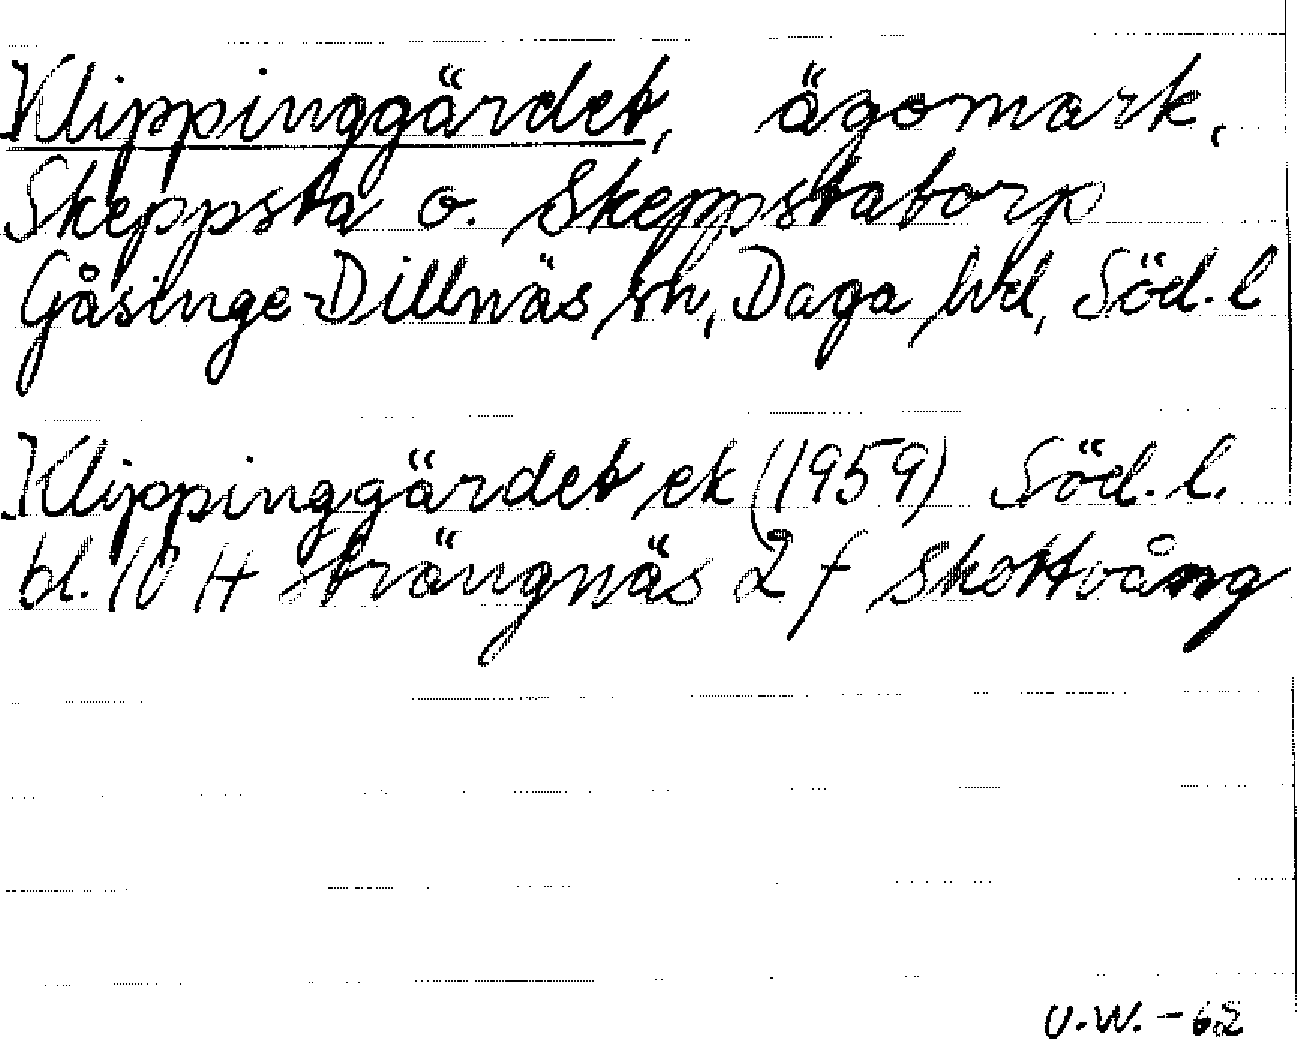 Klippinggärdet, ägomark,
Skeppsta o. Skeppstatorp
Gåsinge-Dillnäs sn, Daga hd, Söd. l
Klippinggärdet ek (1959) Söd. l.
bl. 10 H Strängnäs 2 f Skottvång
U.W. - 62